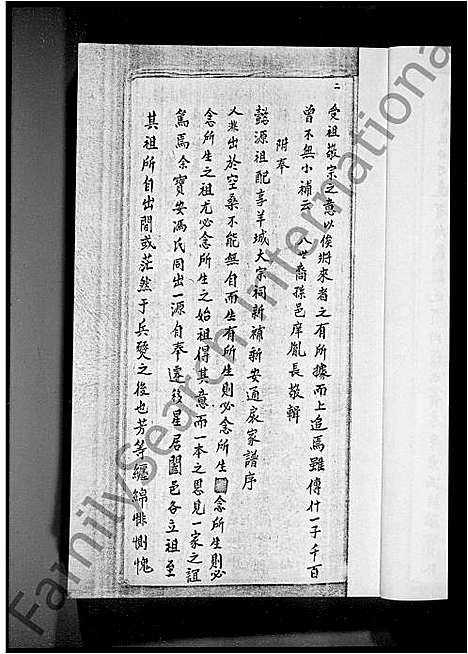 二
受祖敬宗之意以俟將來者之有所據而上追焉雖傳什一于千百
曾不無小補云　八世裔孫邑庠胤長敬輯
附奉
懿源祖配享羊城大宗祠新補新安通家譜序
人非出於空桑不能無自而生有所生則必念所生念所生則必
念所生之祖尤必念所生之始祖得其意而一本之恩見一家之誼
篤焉余寶安馮氏同出一源自奉遷後星居闔邑各立祖至
其祖所自出間或茫然于兵燹之後也芳等纏綿悱惻愧
FamilySearch International